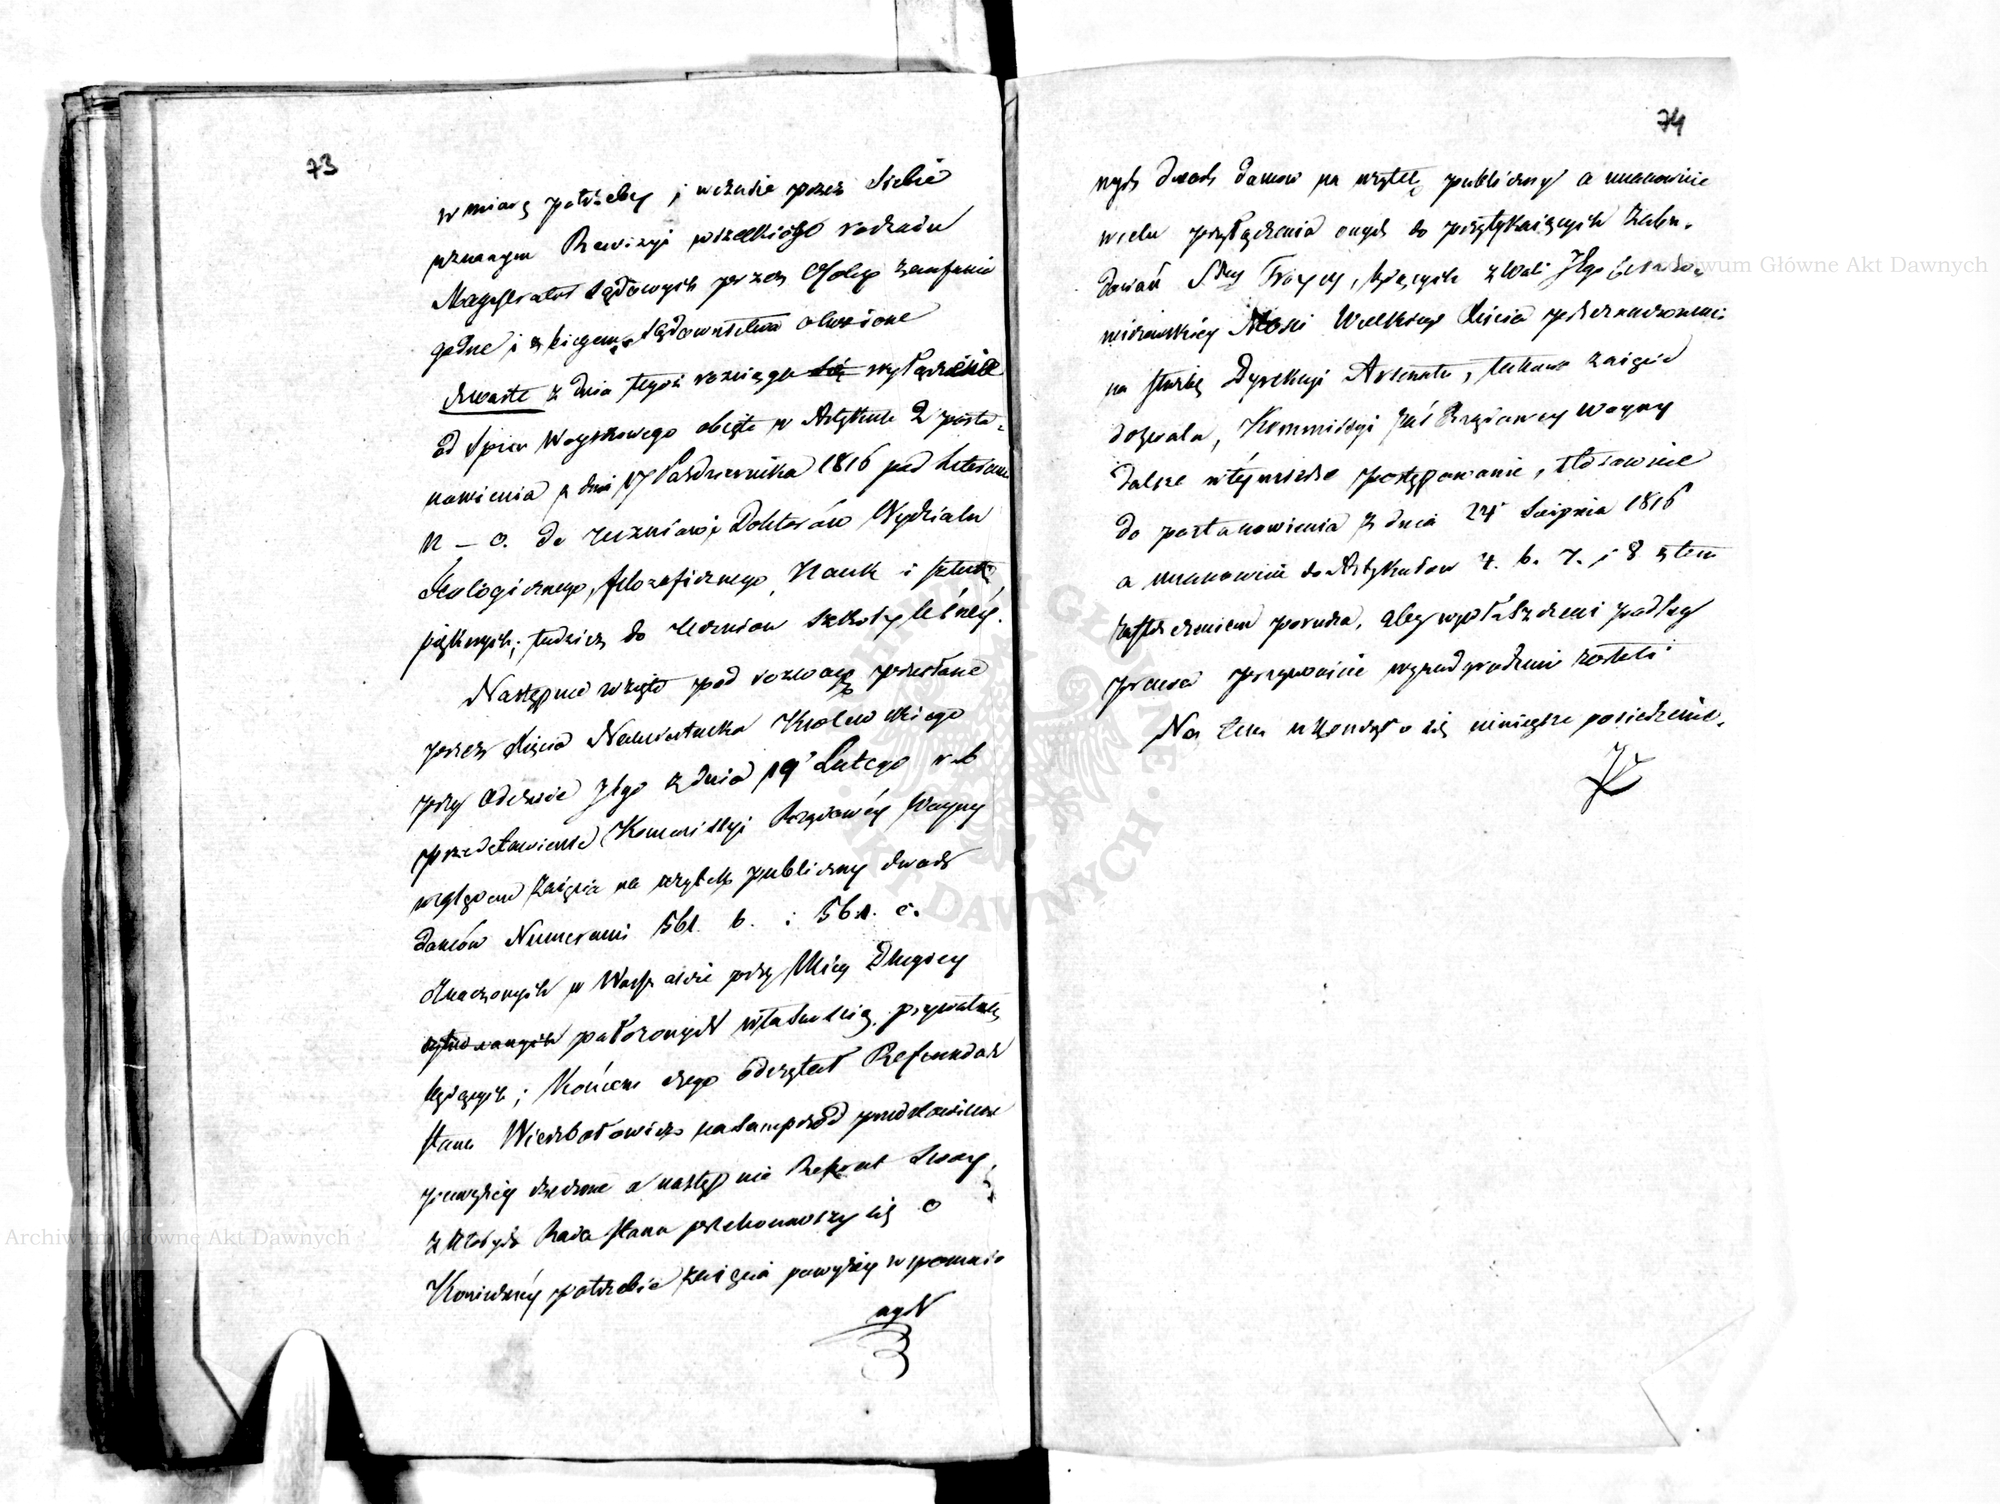 73
w miarę potrzeby i w czasie przez siebie
uznanym Rewizyi wszelkiego rodzaiu
Magistratur Sądowych przez Osoby zaufania
godne i z biegiem Sądownictwa obeznane
czwarte z dnia tegoż rozciąga się wyłączenie
od Spisu Woyskowego obięte w Artykule 2 posta-
nowienia z dnia 17 Października 1816 pod literami
n – o. do Uczniów i Doktorów Wydziału
Teologicznego, filozoficznego, Nauk i sztuk
pięknych; tudzież do Uczniów szkoły leśnéy.
Następnie wzięto pod rozwagę przesłane
przez Xięcia Namiestnika Krolewskiego
przy odezwie Jego z dnia 19 Lutego r. b.
przedstawienie Kommissyi Rządowéy Woyny
względem zaięcia na użytek publiczny dwóch
domów Numerami 561. b. i 561. c.
oznaczonych w Warszawie przy Ulicy Długiey
sytuowanych położonych własnością prywatną
będących; Końcem czego odczytał Referendarz
Stanu Wierzbołowicz nasamprzód przedstawienie
powyżéy rzeczone a następnie Referat Swóy,
z których Rada Stanu przekonawszy się o
Koniecznéy potrzebie zaięcia powyżéy wspomnio
nych
74
nych dwóch domów na użytek publiczny a mianowicie
w celu przyłączenia onych do przytykaiących Zabu-
dowań Stey Tróycy, będących z woli Jego Cesarzo-
wiczowskiéy Mości Wielkiego Xięcia przeznaczonemi
na służbę Dyrekcyi Arsenału, takowe zaięcie
dozwala, Kommissyi zaś Rządowey Woyny
dalsze w téy mierze postępowanie, stosownie
do postanowienia z dnia 24 Sierpnia 1816
a mianowicie do Artykułów 4. 6. 7. i 8 z tem
zastrzeżeniem porucza, aby wywłaszczeni podług
prawa przyzwoicie wynadgrodzeni zostali.
Na tem ukończyło się ninieysze posiedzenie.
Archiwum Główne Akt Dawnych
Archiwum Główne Akt Dawnych